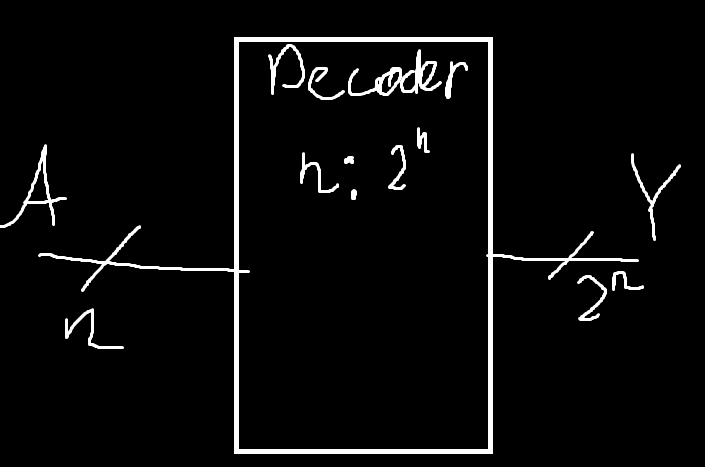 Decoder
n: 2ⁿ
A
Y
n
2ⁿ